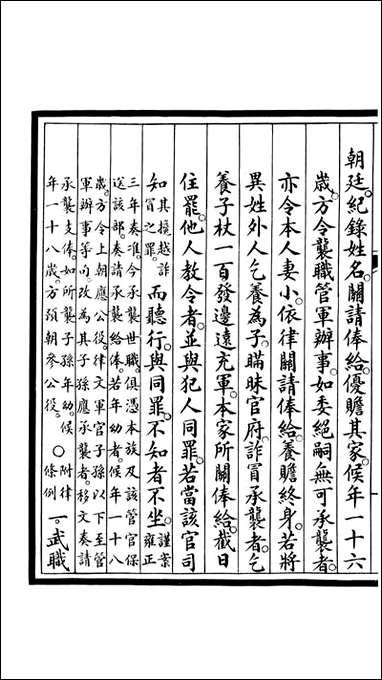 朝廷。紀錄姓名。關請俸給。優贍其家。候年一十六
歲。方令襲職管軍辦事。如委絕嗣。無可承襲者。
亦令本人妻小。依律關請俸給。養贍終身。若將
異姓外人乞養為子。瞞昧官府。詐冒承襲者。乞
養子杖一百。發邊遠充軍。本家所關俸給。截日
住罷。他人教令者。並與犯人同罪。若當該官司
知其攙越詐冒之罪。而聽行。與同罪。不知者不坐。謹案雍正
三年奏准。今承襲世職。俱憑本族及該管官保
送該部。奏請承襲給俸。若年幼者。候年一十八
歲。方令上朝應公役。律文軍官子孫以下至管
軍辦事等句。改為其子孫應承襲者。移文奏請
承襲支俸。如所襲子孫年幼。候
年一十八歲。方預朝參公役。
○附律條例
一。武職